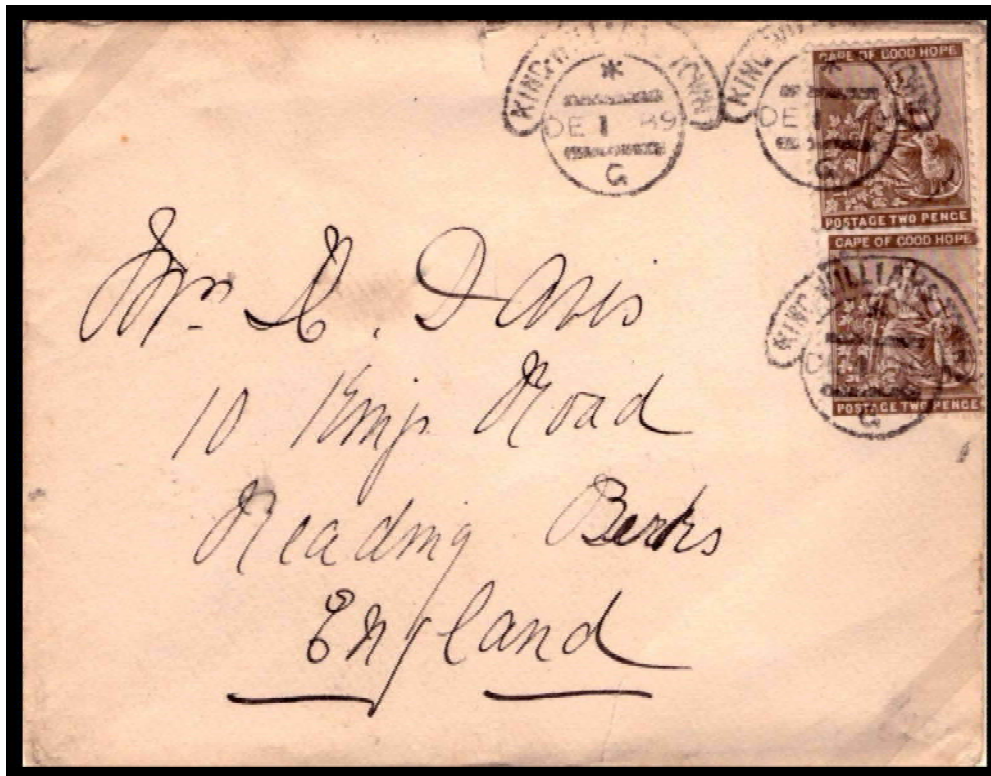 KING WILLIAMS TOWN
*
DE 1 89
G
KING WILLIAMS TOWN
*
DE 1
G
CAPE OF GOOD HOPE
POSTAGE TWO PENCE
CAPE OF GOOD HOPE
POSTAGE TWO PENCE
KING WILLIAMS TOWN
G
Mr. A. Davis
10 King's Road
Reading Berks
England